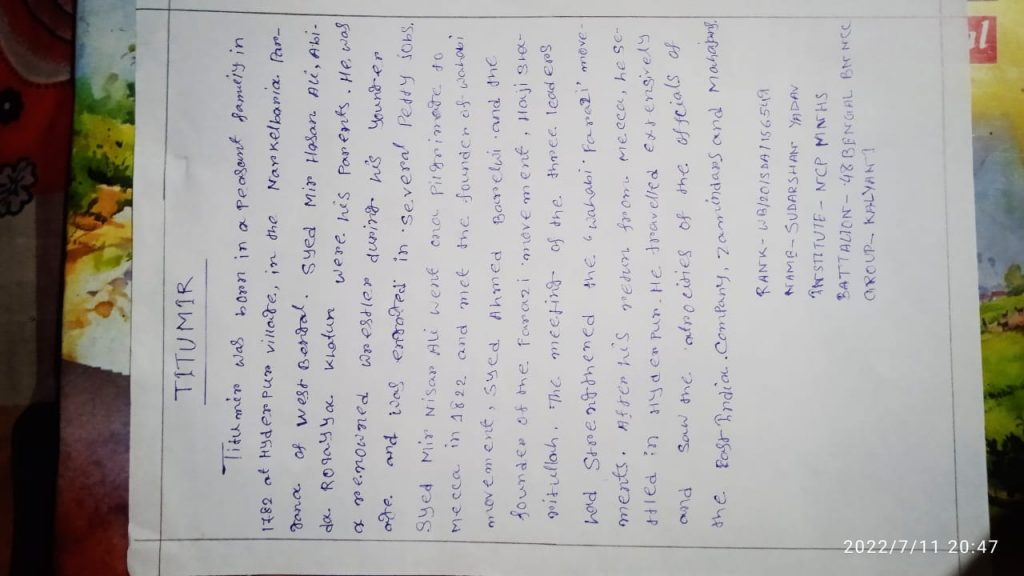 TITUMIR
Titumir was born in a peasant family in
1782 at Hyderpur village, in the Narkelbaria Par-
gana of West Bengal. Syed Mir Hasan Ali, Abi-
da Rogayya Khatun were his parents. He was
a renowned wrestler during his younger
age and was engaged in several petty jobs.
Syed Mir Nisar Ali went on a pilgrimage to
Mecca in 1822 and met the founder of wahabi
movement, Syed Ahmed Barelwi and the
founder of the Farazi movement, Haji Sha-
ritullah. The meeting of the three leaders
had strengthened the 'wahabi Farazi' move-
ments. After his return from Mecca, he se-
ttled in Hyderpur. He travelled extensively
and saw the atrocities of the officials of
the East India Company, Zamindars and Mahajans.
RANK - WB/2015DA/1156549
NAME - SUDARSHAN YADAV
INSTITUTE - NCP MNFHS
BATTALION - 48 BENGAL BN NCC
GROUP - KALYANI
al
2022/7/11 20:47